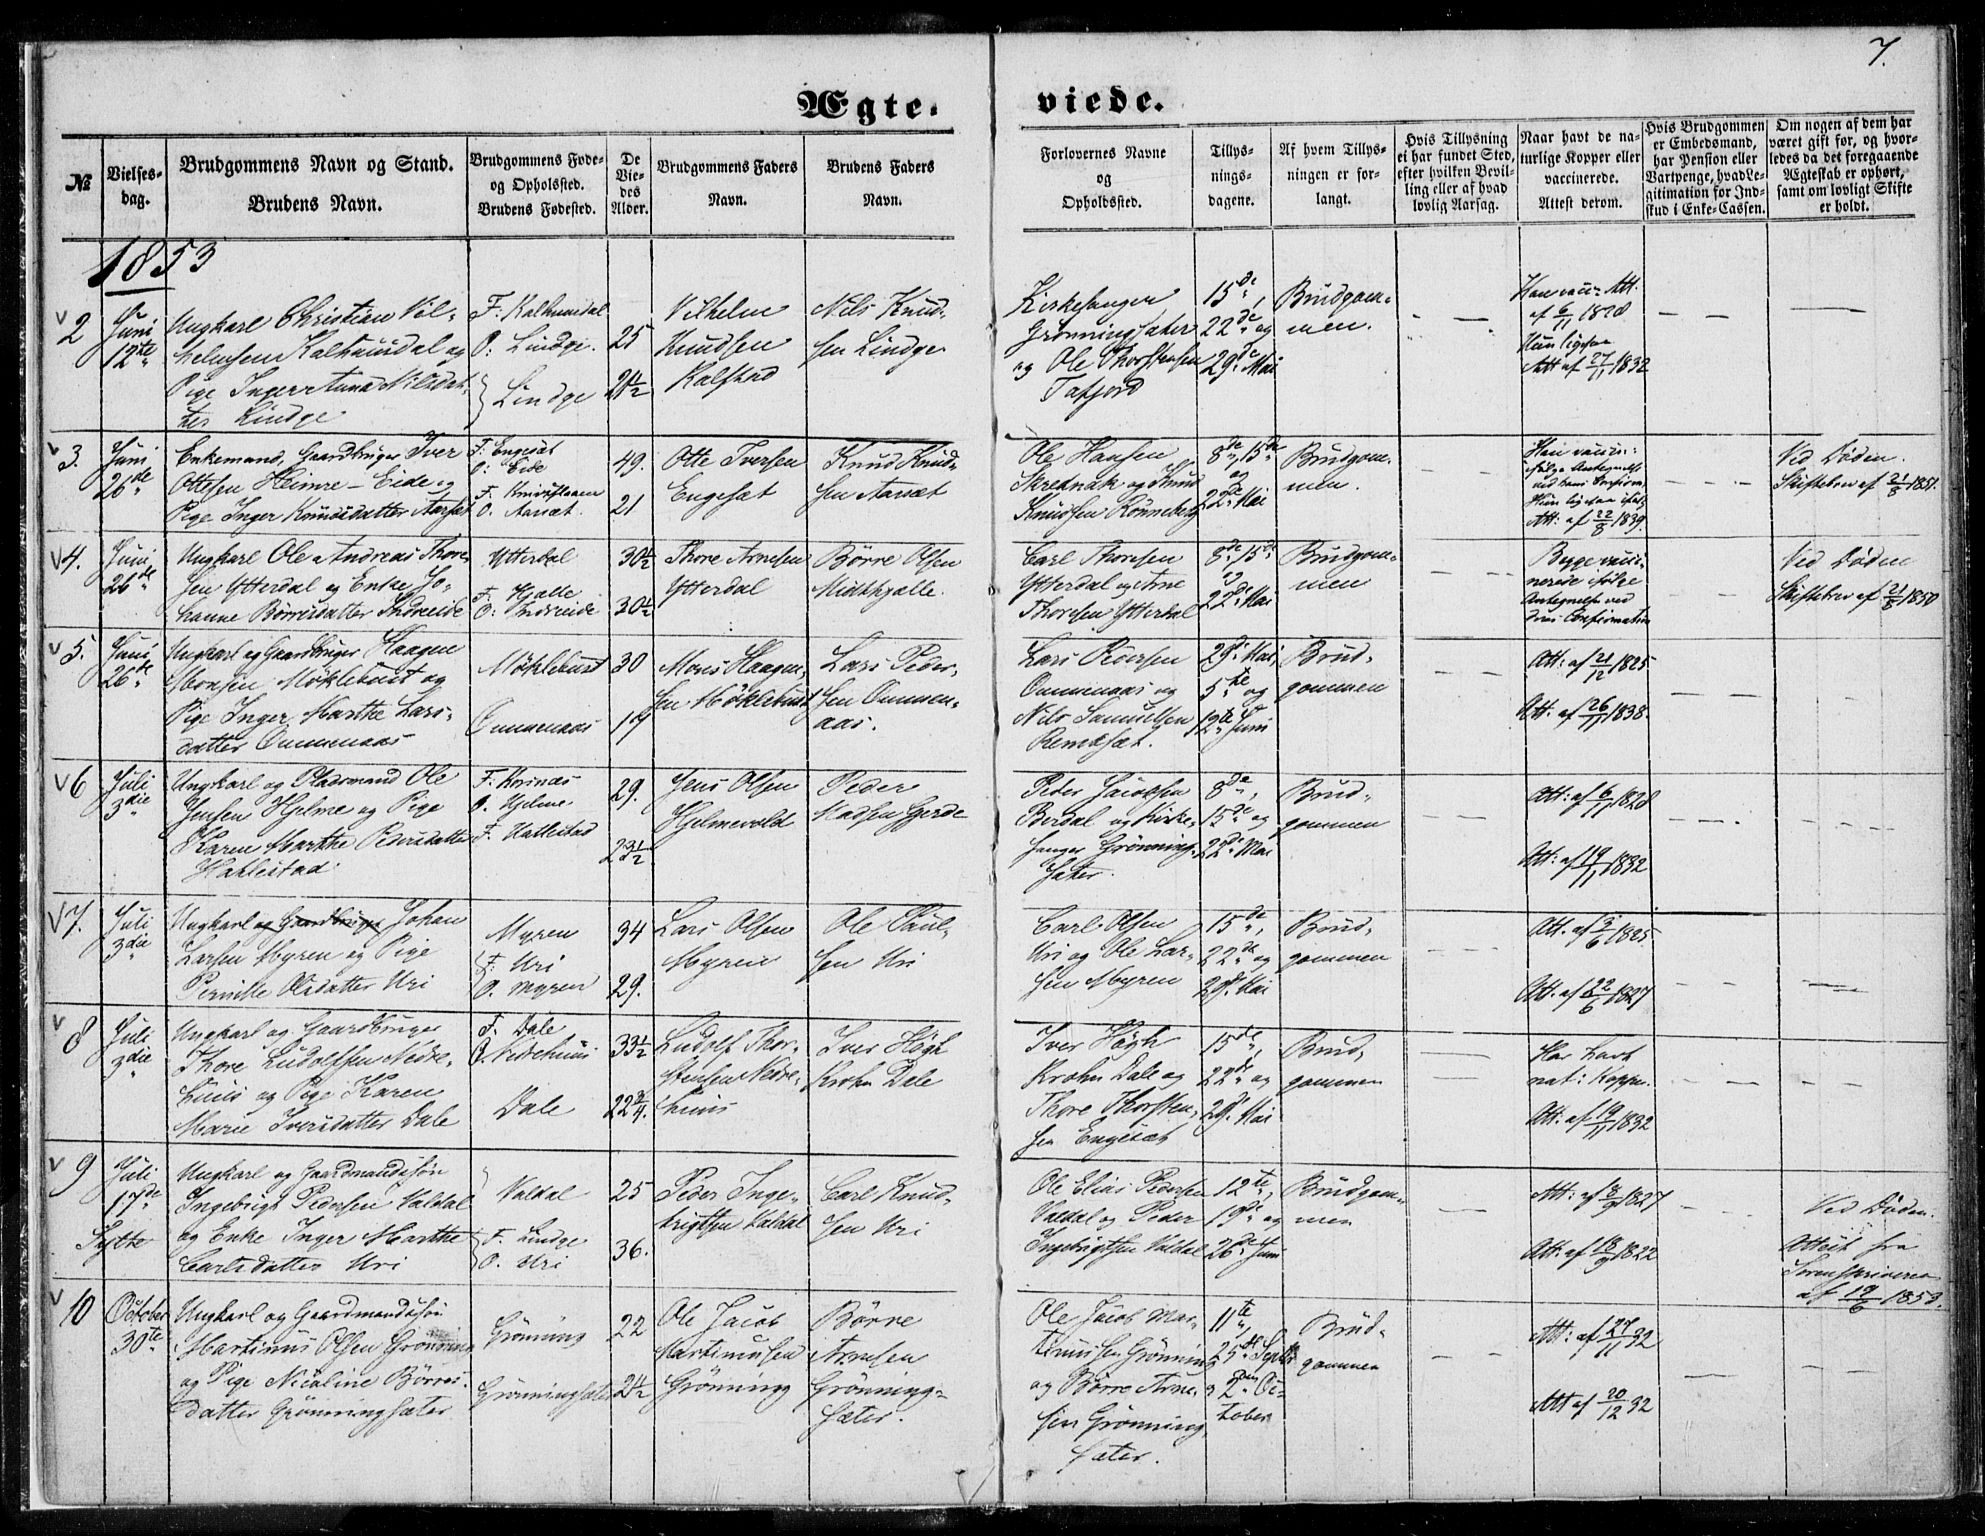 7.
Ægte. viede.
№
Vielses-
dag.
Brudgommens Navn og Stand.
Brudens Navn.
Brudgommens Føde-
og Opholssted.
Brudens Fødested.
De
Vie-
des
Alder.
Brudgommens Faders
Navn.
Brudens Faders
Navn.
Forlovernes Navne
og
Opholdssted.
Tillys-
nings-
dagene.
Af hvem Tillys-
ningen er for-
langt.
Hvis Tillysning
ei har fundet Sted,
efter hvilken Bevil-
ling eller af hvad
lovlig Aarsag.
Naar havt de na-
turlige Kopper eller
vaccinerede.
Attest derom.
Hvis Brudgommen
er Embedsmand,
har Pension eller
Vartpenge, hvad Le-
gitimation for Ind-
skud i Enke-Cassen.
Om nogen af dem har
været gift før, og hvor-
ledes da det foregaaende
Ægteskab er ophørt,
samt om lovligt Skifte
er holdt.
1853
2
Juni
12te
Ungkarl Christian Vil-
helmsen Kalhuusdal og
Pige Inger Anna Nilsdat-
ter Lindge
F. Kalhuusdal
O: Lindge.
Lindge
25
24½
Vilhelm
Knudsen
Kalstad
Nils Knud-
sen Lindge
Kirkesanger
Grønningsæter
og Ole Thorstensen
Tafjord
15de,
22de og
29de Mai
Brudgom-
men.
Han vacc. Att.
af 6/11 1828
Hun ligesaa
Att af 27/11 1832
3.
Juni
26de
Enkemand, Gaardbruger Iver
Ottesen Heimre-Eide og
Pige Inger Knudsdatter Aarsæt
F. Engesæt
O: Eide
O. Aarsæt.
49.
21
Otte Iversen
Engesæt
Knud Knud-
sen Aarsæt
Ole Hansen
Skrednak og Knud
Knudsen Rønneberg
8de, 15de
og
22de Mai
Brudgom-
men.
Han vacc.
ifølge Antegnelse
ved hans Confirm.
Hun ligesaa ifølg.
Att: af 22/8 1839.
Ved Døden.
Skiftebrev af 21/8 1851.
4.
Juni
26de
Ungkarl Ole Andreas Thore-
sen Ytterdal og Enke Jo-
hanne Børresdatter Indreeide
Ytterdal
F. Hjelle
O: Indreeide
30½
30½
Thore Arnesen
Ytterdal
Børre Olsen
Midthjelle.
Carl Thoresen
Ytterdal og Arne
Thoresen Ytterdal
8de, 15de
og
22de Mai
Brudgom-
men
Begge vacci-
nerede ifølge
Antegnelse ved
deres Confirmation
Ved Døden
Skiftebrev af 21/8 1850
5.
Juni
26de
Ungkarl og Gaardbruger Haagen
Monsen Møklebust og
Pige Inger Marthe Lars-
datter Ommenaas
Møklebust
Ommenaas
30
19
Mons Haagen-
sen Møklebust
Lars Peder-
sen Ommen-
aas.
Lars Pedersen
Ommenaas og
Nils Samuelsen
Remesæt.
29de Mai
5te og
12te Juni
Brud-
gommen
Att: af 21/12 1825
Att. af 26/11 1838.
6
Juli
3die
Ungkarl og Pladsmand Ole
Jensen Hjelme og Pige
Karen Marthe Pedersdatter
Hattlestad
F. Korsnæs
O. Hjelme
F. Hattlestad
29.
23½
Jens Olsen
Hjelmevold
Peder
Madsen Gjerde
Peder Jacobsen
Berdal og Kirke-
sanger Grønning-
sæter.
8de,
15de og
22de Mai
Brud-
gommen
Att: af 6/11 1828
Att: af 19/11 1832
7.
Juli
3die
Ungkarl og Gaardbruger Johan
Larsen Myren og Pige
Pernille Olsdatter Uri
Myren
F. Uri
O. Myren
34
29.
Lars Olsen
Myren
Ole Paul-
sen Uri
Carl Olsen
Uri og Ole Lar-
sen Myren
15de,
22de og
29de Mai
Brud-
gommen
Att. af 3/6 1825
Att. af 22/6 1827
8
Juli
3die
Ungkarl og Gaardbruger
Thore Ludolfsen Nedre-
huus og Pige Karen
Marie Iversdatter Dale
F. Dale
O. Nedrehuus
Dale
33½
22¾.
Ludolf Thor-
stensen Nedre-
huus
Iver Høgh
Krohn Dale
Iver Høgh
Krohn Dale og
Thore Thorsten-
sen Engesæt
15de,
22de og
29de Mai
Brud-
gommen
Har havt
nat: Kopper.
Att: af 19/11 1832
9
Juli
17de
Sylte
Ungkarl og Gaardmandssøn
Ingebrigt Pedersen Valdal
og Enke Inger Marthe
Carlsdatter Uri
Valdal
F. Lindge
O. Uri
25
36.
Peder Inge-
brigtsen Valdal
Carl Knud-
sen Uri
Ole Elias Pedersen
Valdal og Peder
Ingebrigtsen Valdal
12te,
19de og
26de Juni
Brudgom-
men
Att: af 1827
Att. af 1822
Ved Døden.
Attest fra
Sorenskriveren
af 19/6 1853.
10
October
30te
Ungkarl og Gaardmandssøn
Martinus Olsen Grønning
og Pige Nicoline Børres-
datter Grønningsæter
Grønning
Grønningsæter
22
24½
Ole Jacob
Martinussen
Grønning
Børre
Arnesen
Grønning-
sæter.
Ole Jacob Mar-
tinussen Grønning
og Børre Arne-
sen Grønning-
sæter.
11te,
25de Septbr
og 2den Oc-
tober
Brud-
gommen
Att: af 27/11 32
Att af 20/12 32